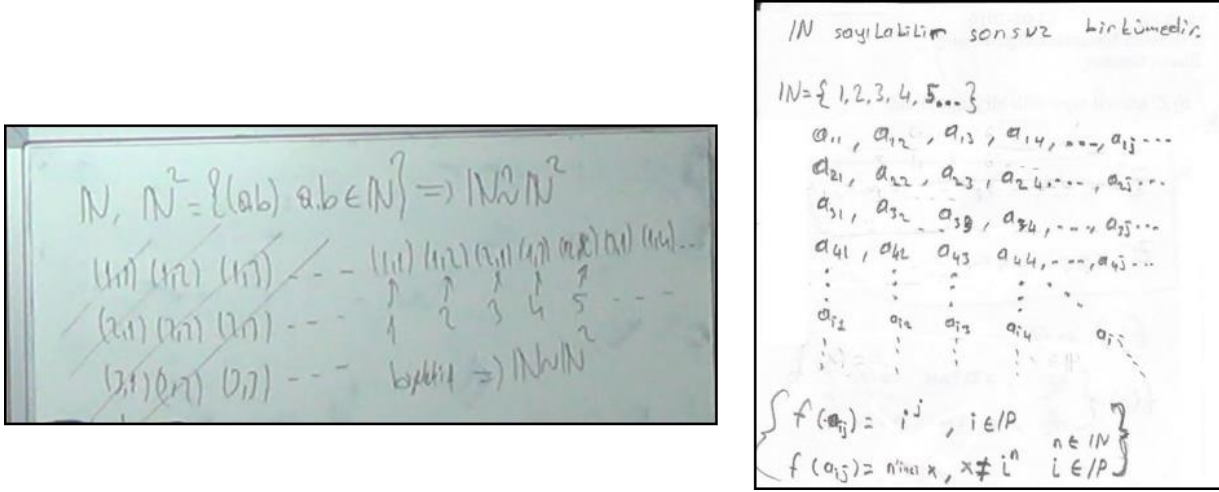 IN, IN² = {(a,b) a,b ∈ IN} => IN ~ IN²
(1,1) (1,2) (1,3) - - - (1,1) (1,2) (2,1) (1,3) (2,2) (3,1) (1,4) ...
↑ ↑ ↑ ↑ ↑
(2,1) (2,2) (2,3) - - - 1 2 3 4 5 - - -
(3,1) (3,2) (3,3) - - - bijektif => IN ~ IN²
IN sayılabilir sonsuz bir kümedir.
IN = { 1, 2, 3, 4, 5... }
a₁₁, a₁₂, a₁₃, a₁₄, ..., a₁ⱼ ...
a₂₁, a₂₂, a₂₃, a₂₄, ..., a₂ⱼ ...
a₃₁, a₃₂ a₃₃, a₃₄, ..., a₃ⱼ ...
a₄₁, a₄₂ a₄₃ a₄₄, ..., a₄ⱼ ...
aᵢ₁ aᵢ₂ aᵢ₃ aᵢ₄ aᵢⱼ
f(aᵢⱼ) = iʲ, i ∈ IP
n ∈ IN
f(aᵢⱼ) = n'inci x, x ≠ iⁿ i ∈ IP